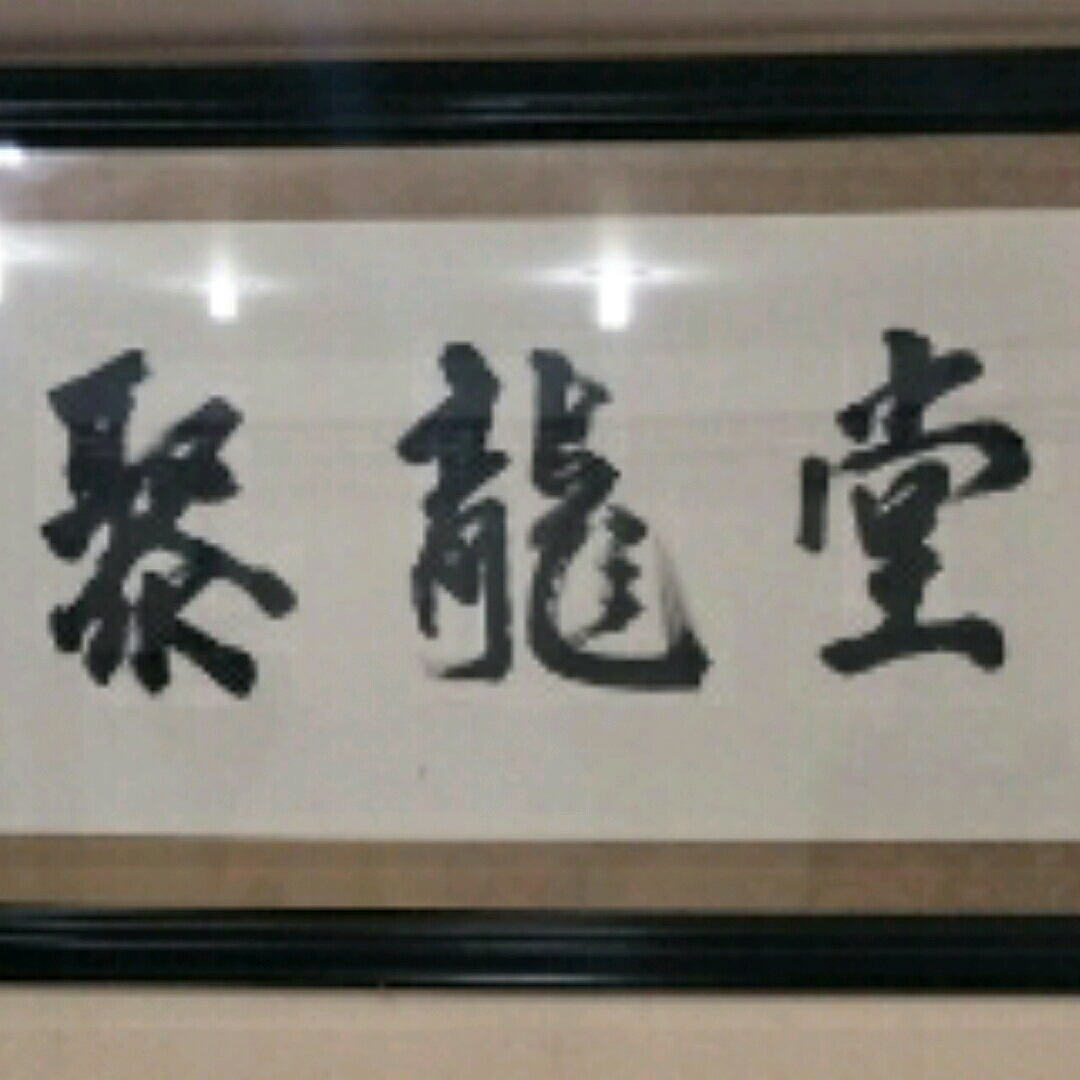 聚龍堂